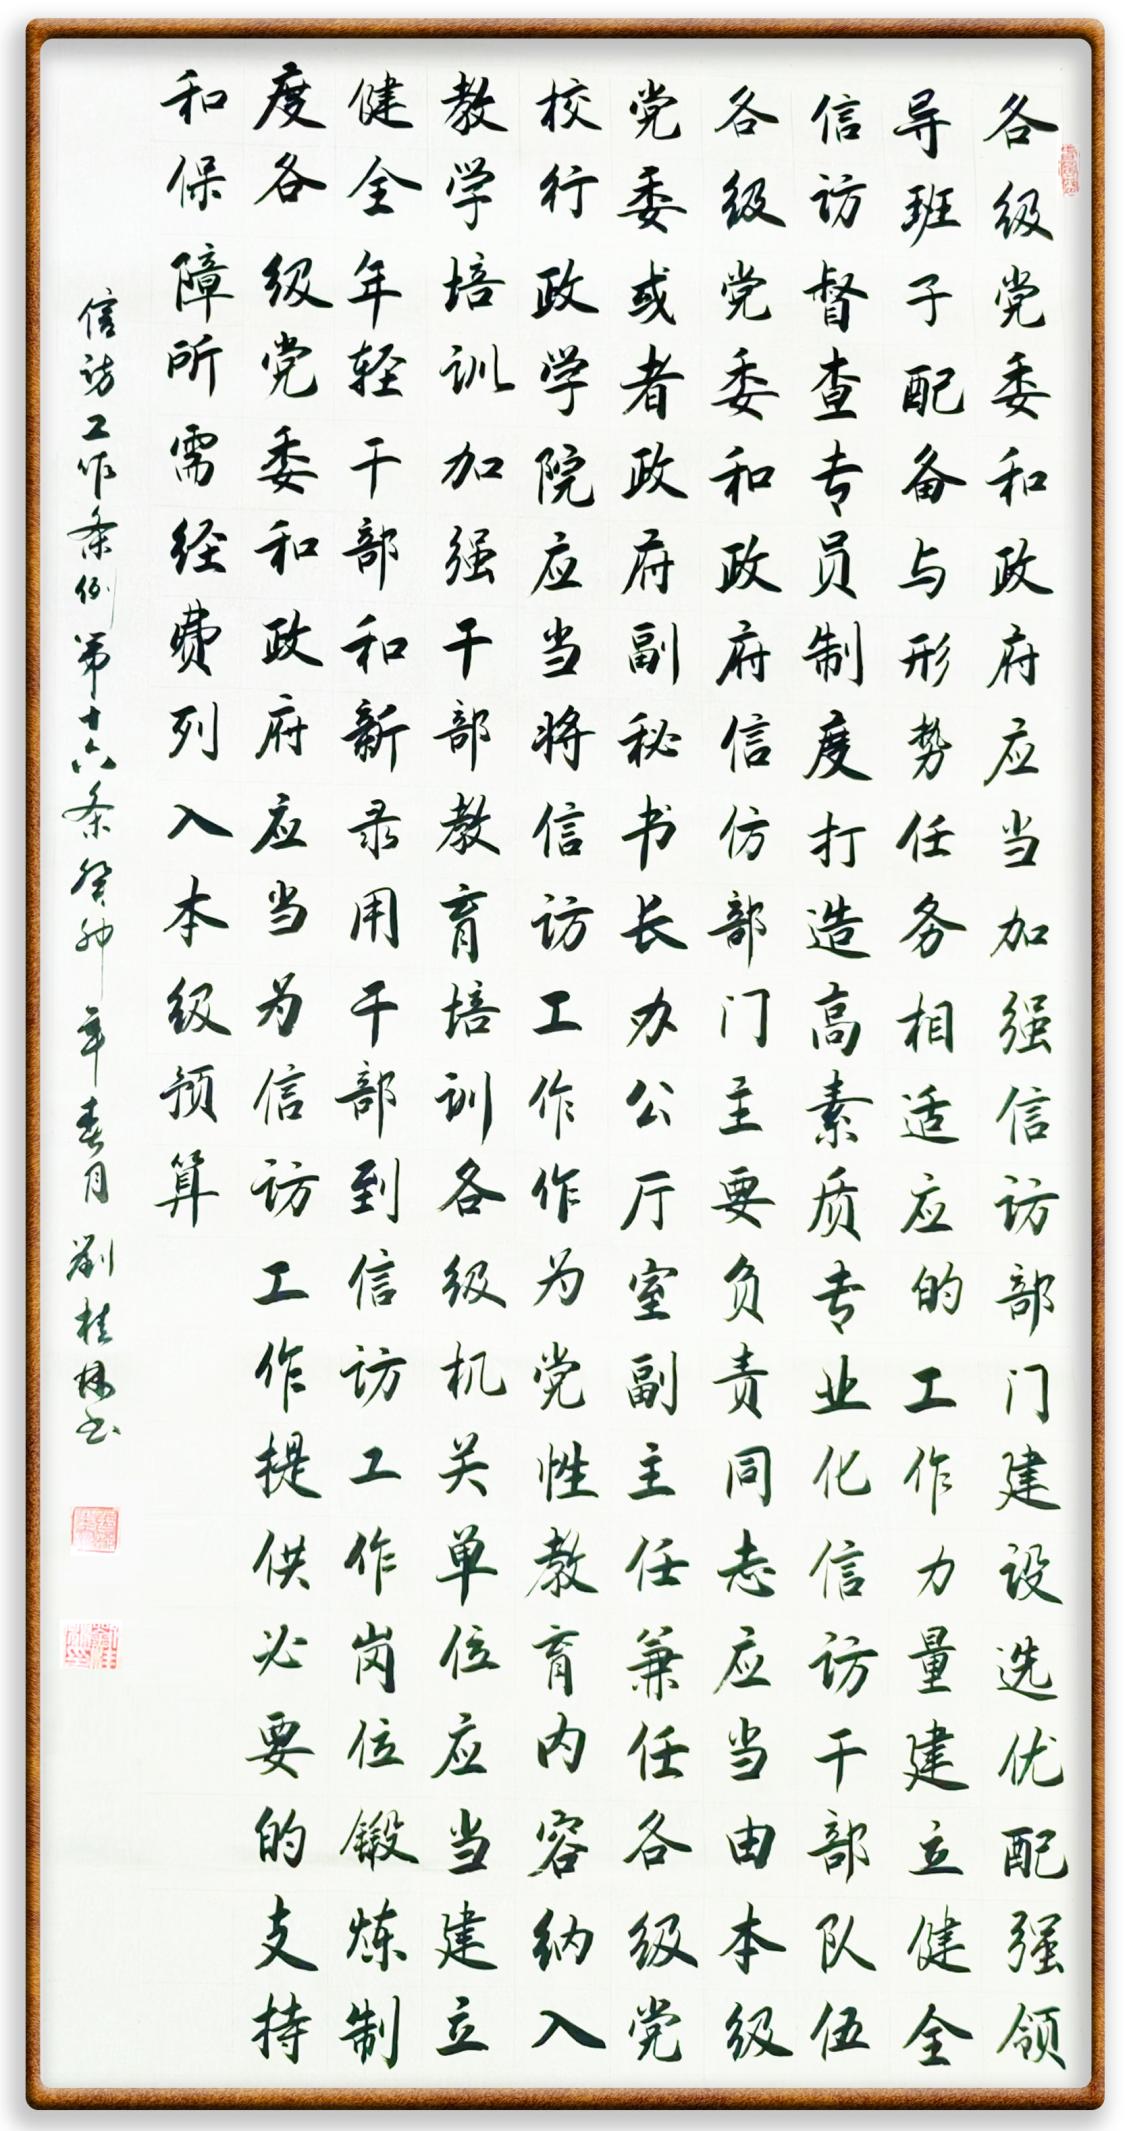 各级党委和政府应当加强信访部门建设选优配强领
导班子配备与形势任务相适应的工作力量建立健全
信访督查专员制度打造高素质专业化信访干部队伍
各级党委和政府信仿部门主要负责同志应当由本级
党委或者政府副秘书长办公厅室副主任兼任各级党
校行政学院应当将信访工作作为党性教育内容纳入
教学培训加强干部教育培训各级机关单位应当建立
健全年轻干部和新录用干部到信访工作岗位锻炼制
度各级党委和政府应当为信访工作提供必要的支持
和保障所需经费列入本级预算
信访工作条例第十六条癸卯年春月刘桂林书